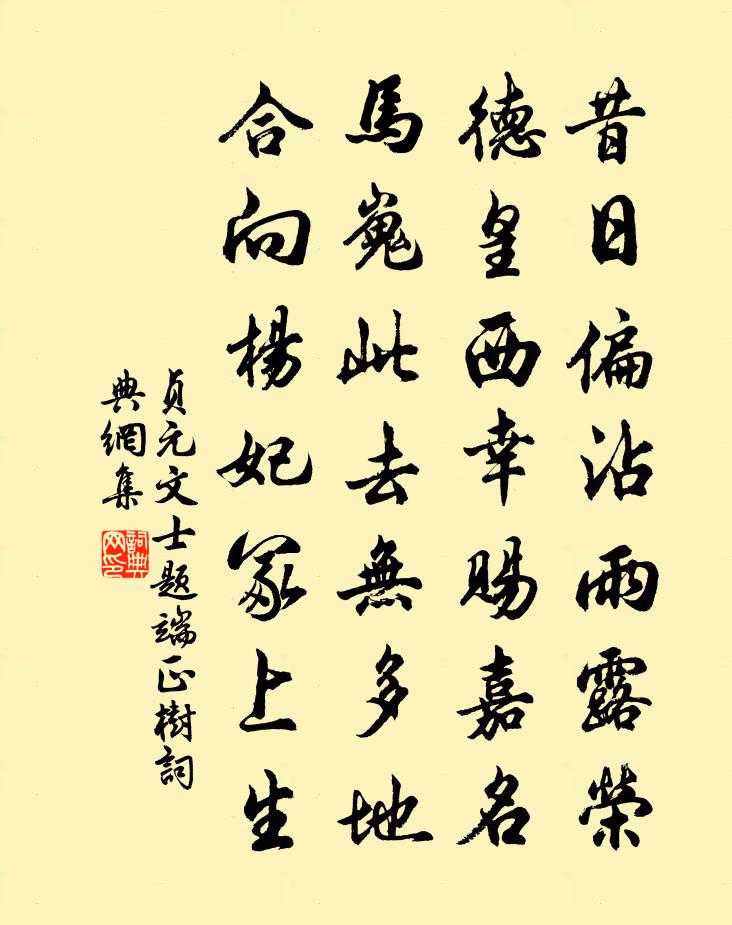 昔日偏沾雨露榮
德皇西幸賜嘉名
馬嵬此去無多地
合向楊妃冢上生
貞元文士題端正樹詞
典網集
詞典
网印